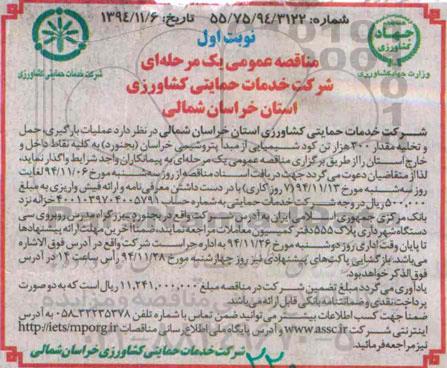 شماره: ۵۵/۷۵/۹۴/۳۱۲۲ تاریخ: ۱۳۹۴/۱۱/۶
جهاد
کشاورزی
وزارت جهاد کشاورزی
شرکت خدمات حمایتی کشاورزی
نوبت اول
مناقصه عمومی یک مرحله‌ای
شرکت خدمات حمایتی کشاورزی
استان خراسان شمالی
شرکت خدمات حمایتی کشاورزی استان خراسان شمالی در نظر دارد عملیات بارگیری، حمل
و تخلیه مقدار ۳۰۰ هزار تن کود شیمیایی از مبدأ پتروشیمی خراسان (بجنورد) به کلیه نقاط داخل و
خارج استان را از طریق برگزاری مناقصه عمومی یک مرحله‌ای به پیمانکاران واجد شرایط واگذار نماید،
لذا از متقاضیان دعوت می‌گردد جهت دریافت اسناد مناقصه از روز سه‌شنبه مورخ ۹۴/۱۱/۰۶ لغایت
روز سه‌شنبه مورخ ۹۴/۱۱/۱۳ (۷ روز کاری) با در دست داشتن معرفی نامه و ارائه فیش واریزی به مبلغ
۵۰۰,۰۰۰ ریال در وجه شرکت خدمات حمایتی به شماره حساب ۴۰۰۱۰۳۹۷۰۴۰۰۵۷۹۱ خزانه نزد
بانک مرکزی جمهوری اسلامی ایران به آدرس این شرکت واقع در بجنورد بزرگراه مدرس روبروی سی
دستگاه شهرداری پلاک ۵۵۵ دفتر کمیسیون معاملات مراجعه نمایند، ضمناً آخرین مهلت ارائه پیشنهادها
تا پایان وقت اداری روز دوشنبه مورخ ۹۴/۱۱/۲۶ به اداره حراست شرکت واقع در آدرس فوق الاشاره
می‌باشد. بازگشایی پاکت‌های پیشنهادی نیز روز چهارشنبه مورخ ۹۴/۱۱/۲۸ رأس ساعت ۱۴ در آدرس
فوق الذکر خواهد بود.
یادآوری می‌گردد مبلغ تضمین شرکت در مناقصه مبلغ ۱۱,۲۴۱,۰۰۰,۰۰۰ ریال است که به دو صورت
پرداخت نقدی و ضمانتنامه بانکی قابل ارائه می‌باشد.
ضمناً جهت کسب اطلاعات بیشتر می‌توانید ضمن تماس با شماره تلفن ۳۲۲۳۵۳۷۸-۰۵۸ به آدرس
اینترنتی شرکت www.assc.ir و آدرس پایگاه ملی اطلاع رسانی مناقصات http://iets/mporg.ir
نیز مراجعه فرمائید.
شرکت خدمات حمایتی کشاورزی خراسان شمالی